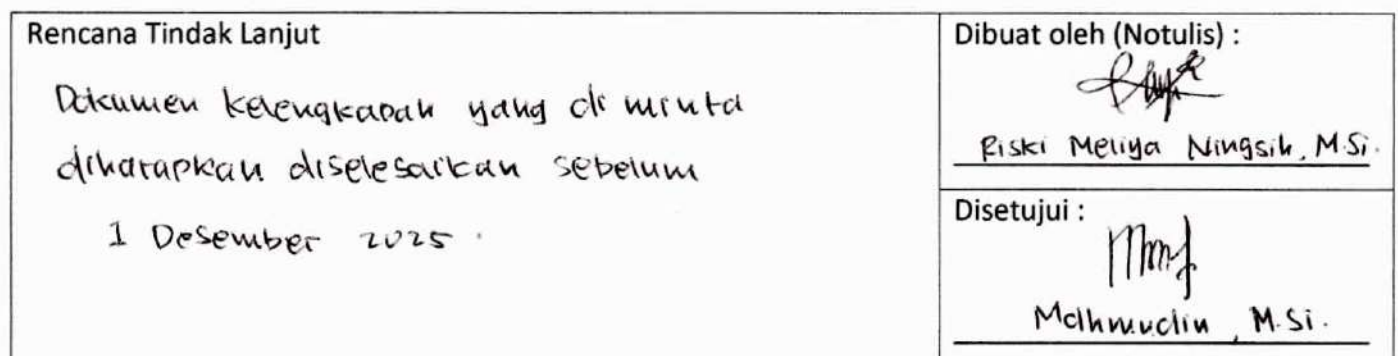 Rencana Tindak Lanjut
Dokumen kelengkapan yang di minta
diharapkan diselesaikan sebelum
1 Desember 2025.
Dibuat oleh (Notulis) :
Riski Meliya Ningsih, M.Si.
Disetujui :
Mahmudin, M.Si.